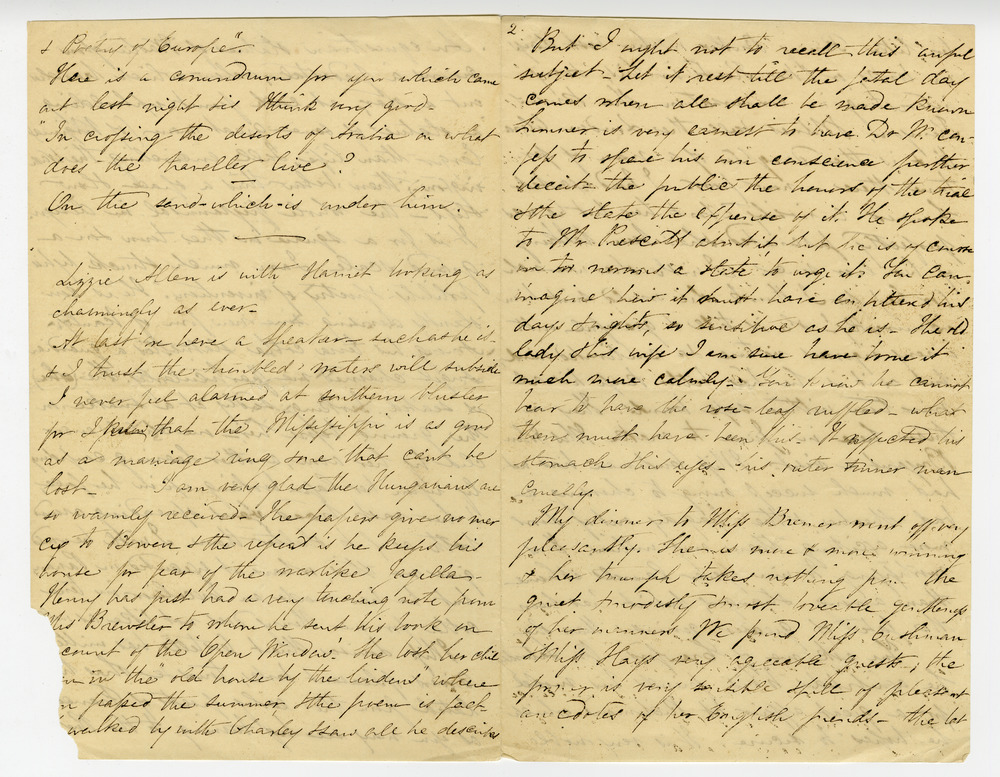 & Poetus of Europe".
Here is a conundrum for you which came
out last night sis think very good.
"In crossing the deserts of Arabia on what
does the traveller live?
On the sand-which-is under him.
Lizzie Allen is with Harriet looking as
charmingly as ever.
At last we have a Speaker – such as he is
& I trust the troubled waters will subside
I never felt alarmed at southern bluster
for I knew that the Mississippi is as good
as a marriage ring, one that can't be
lost – I am very glad the Hungarians are
so warmly received. The papers give no mer
cy to Bowen & the report is he keeps his
house for fear of the warlike Jagella –
Henry has just had a very touching note from
Mrs Brewster to whom he sent his book on
count of the 'Open Window'. She lost her chil
in the "old house by the lindens" where
passed the summer & the poem is fact
walked by with Charley & saw all he describes
2
But I ought not to recall this awful
subject – Let it rest till the fatal day
comes when all shall be made known
Sumner is very earnest to have Dr W. con-
fess to spare his own conscience further
deceit – the public the horrors of the trial
& the state the expense of it. He spoke
to Mr. Prescott about it but he is of course
in too nervous a state to urge it. You can
imagine how it must have embittered his
days & nights, so sensitive as he is – The old
lady & his wife I am sure have borne it
much more calmly. You know he cannot
bear to have the rose-leaf ruffled – what
then must have been this. It affected his
stomach & his eyes – his outer & inner man
cruelly.
My dinner to Miss Bremer went off very
pleasantly. She is more & more winning
& her triumph takes nothing from the
quiet & modesty & most loveable gentleness
of her manners. We found Miss Cushman
& Miss Hays very agreeable guests, the
former is very sensible & full of pleasant
anecdotes of her English friends – the lat